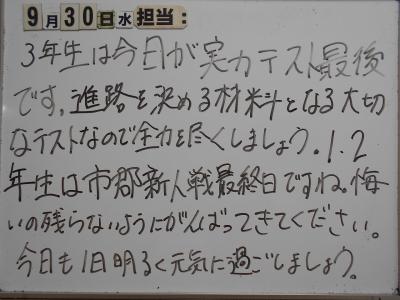 9月30日水担当:
3年生は今日が実力テスト最後
です。進路を決める材料となる大切
なテストなので全力を尽くしましょう。1.2
年生は市郡新人戦最終日ですね。悔
いの残らないようにがんばってきてください。
今日も1日明るく元気に過ごしましょう。